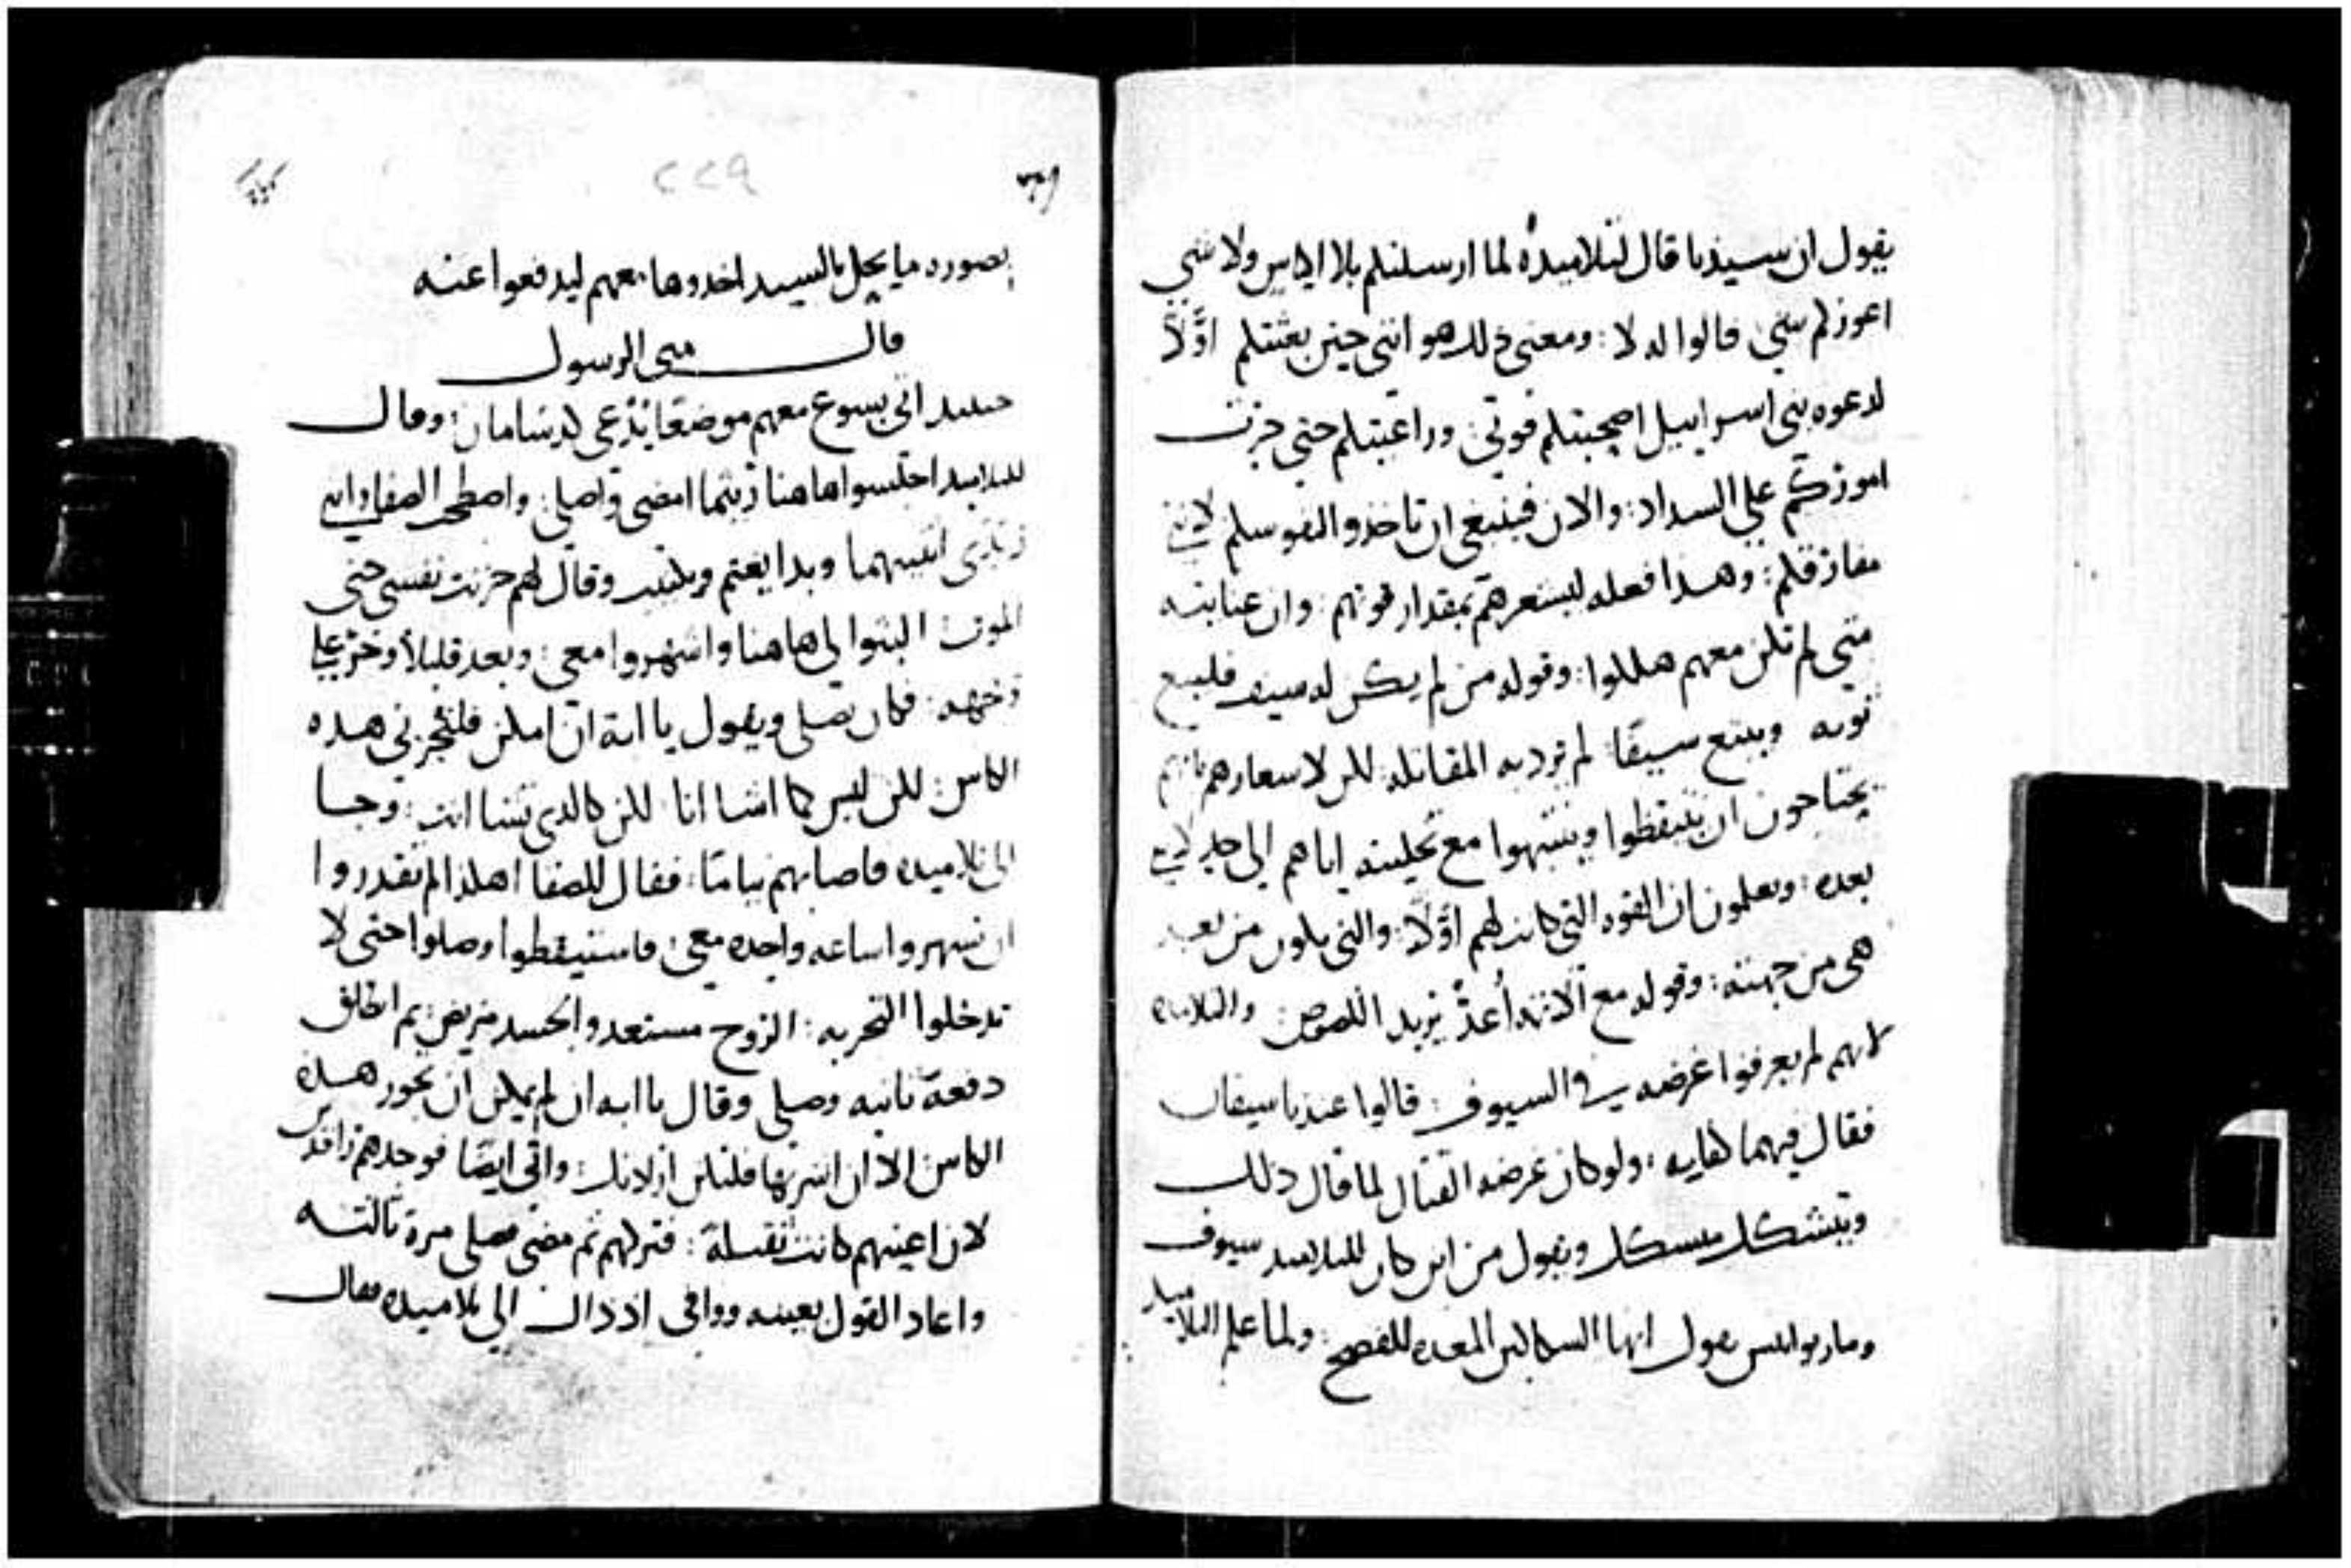 يقول ان سيدنا قال لتلاميده لما ارسلتكم بلا اكياس ولا شي
اعوزكم شي قالوا له لا : ومعنى دلك هو انني حين بعثتكم اوَّلاً
لدعوه بني اسراييل اصحبتكم قوتي : وراعيتكم حتى جرت
اموركم على السداد : والان فينبغي ان تاخدوا لنفوسكم لانني
مفارقكم : وهدا فعله ليشعرهم بمقدار قوتهم : وان عنايته
متى لم تكن معهم هلكوا : وقوله من لم يكن له سيف فليبيع
ثوبه ويبتع سيفًا : لم يرد به المقاتله لكن لاشعارهم بانهم
يحتاجون ان يتيقظوا وينتبهوا مع تخليته اياهم الى
بعده : ويعلمون ان القوه التي كانت لهم اوَّلاً : والتي تكون من بعد
هي من جهته : وقوله مع الاثمه أُعدُّ يريد اللصوص : والتلاميد
لانهم لم يعرفوا غرضه في السيوف : قالوا عندنا سيفان
فقال فيهما كفايه : ولو كان غرضه القتال لما قال دلك
ويتشكك متشكك ويقول من اين كان للتلاميد سيوف
وماريوانيس يقول انها السكاكين المعده للفصح : ولما علم التلاميد
بصوره ما يحل بالسيد اخدوها معهم ليدفعوا عنه
٢٢٩
قال متى الرسول
حينيد اتى يسوع معهم موضعًا يُدعى لدشامان : وقال
للتلاميد اجلسوا هاهنا ريثما امضى واصلي : واصطحب الصفا وابني
زبدى اثنيهما وبدا يغتم ويكتيب وقال لهم حزنت نفسي حتى
الموت : البثوا لي هاهنا واسهروا معي : وبعد قليلاً وخرّ على
وجهه : فكان يصلي ويقول يا ابة ان امكن فلتجزني هده
الكاس : لكن ليس كما اشا انا لكن كالدي تشا انت : وجا
الى تلاميده فاصابهم نيامًا : فقال للصفا اهكدا لم تقدروا
ان تسهروا ساعه واحده معي : فاستيقظوا وصلوا حتى لا
تدخلوا التجربه : الروح مستعد والجسد مريض : ثم انطلق
دفعة ثانيه وصلى وقال يا ابه ان لم يمكن ان تجوز هده
الكاس الا ان اشربها فلتكن ارادتك : واتى ايضًا فوجدهم راقدين
لان اعينهم كانت ثقيلة : فتركهم ثم مضى فصلى مرة ثالثه
واعاد القول بعينه ووافى اد داك الى تلاميده فقال